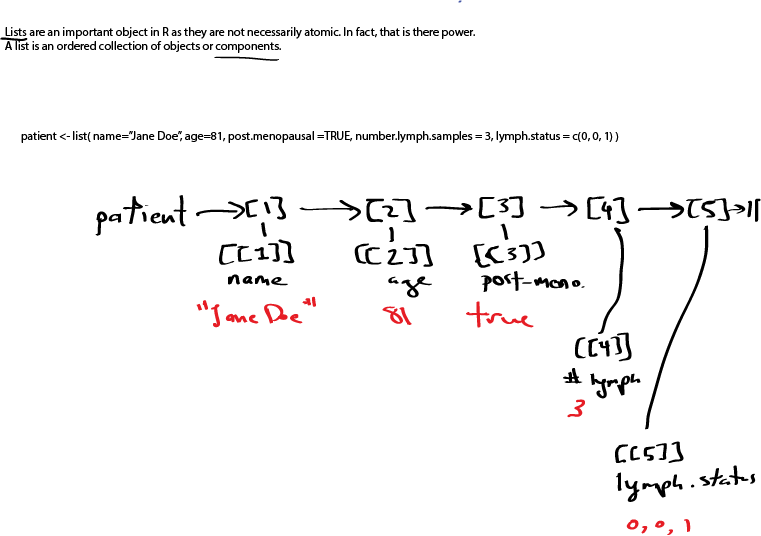 Lists are an important object in R as they are not necessarily atomic. In fact, that is there power.
A list is an ordered collection of objects or components.
patient <- list( name="Jane Doe", age=81, post.menopausal =TRUE, number.lymph.samples = 3, lymph.status = c(0, 0, 1) )
patient → [1] → [2] → [3] → [4] → [5] → ||
[[1]] [[2]] [[3]]
name age post-meno.
"Jane Doe" 81 true
[[4]]
# lymph
3
[[5]]
lymph.status
0, 0, 1